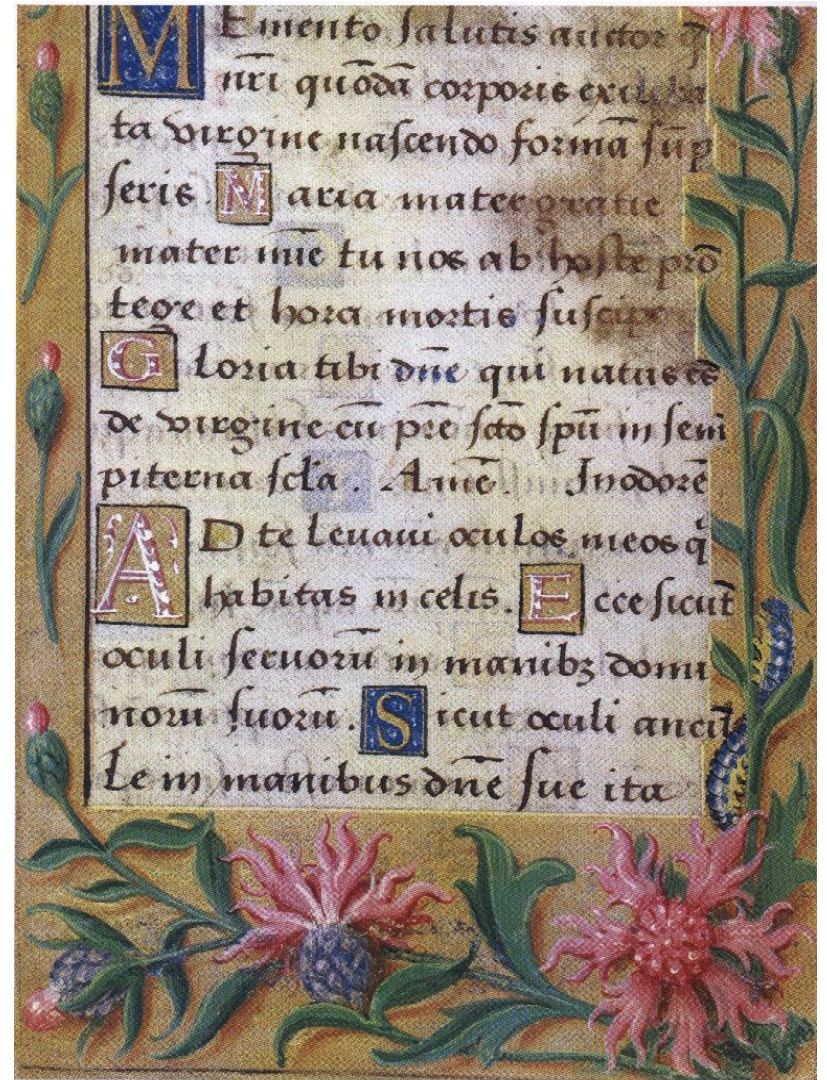 MEmento salutis auctor q̄
nr̄i quōdā corporis ex illiba
ta virgine nascendo formā sūp
seris. Maria mater gratie
mater mīe tu nos ab hoste prō
tege et hora mortis suscipe
Gloria tibi dn̄e qui natus es
de virgine cū pr̄e sc̄to sp̄u in sem̄
piterna sc̄la. Amē. In odorē
AD te levavi oculos meos q̇
habitas in celis. Ecce sicut
oculi servorū in manibꝫ domi
norū suorū. Sicut oculi ancil
le in manibus dn̄e sue ita